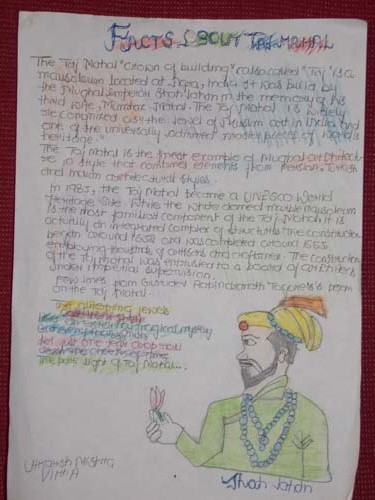 FACTS ABOUT TAJ MAHAL
The Taj Mahal "Crown of building" also called "Taj" is a
mausoleum located at Agra, India. It was built by
the Mughal emperor Shah Jahan in the memory of his
third wife, Mumtaz Mahal. The Taj Mahal is widely
recognised as "the jewel of Muslim art in India and
one of the universally admired masterpieces of world's
heritage."
The Taj Mahal is the finest example of Mughal architect-
ure, a style that combines elements from Persian, Turkish
and Indian architectural styles.
In 1983, the Taj Mahal became a UNESCO World
Heritage Site. While the white domed marble mausoleum
is the most familiar component of the Taj Mahal, it is
actually an integrated complex of structures. The construction
began around 1632 and was completed around 1653
employing thousands of artisans and craftsmen. The construction
of the Taj Mahal was entrusted to a board of architects
under imperial supervision.
Few lines from Gurudev Rabindranath Tagore's poem
on the Taj Mahal
jewels
Let just one tear drop
The pure sight of Taj Mahal...
Shah Jahan
VIIth A